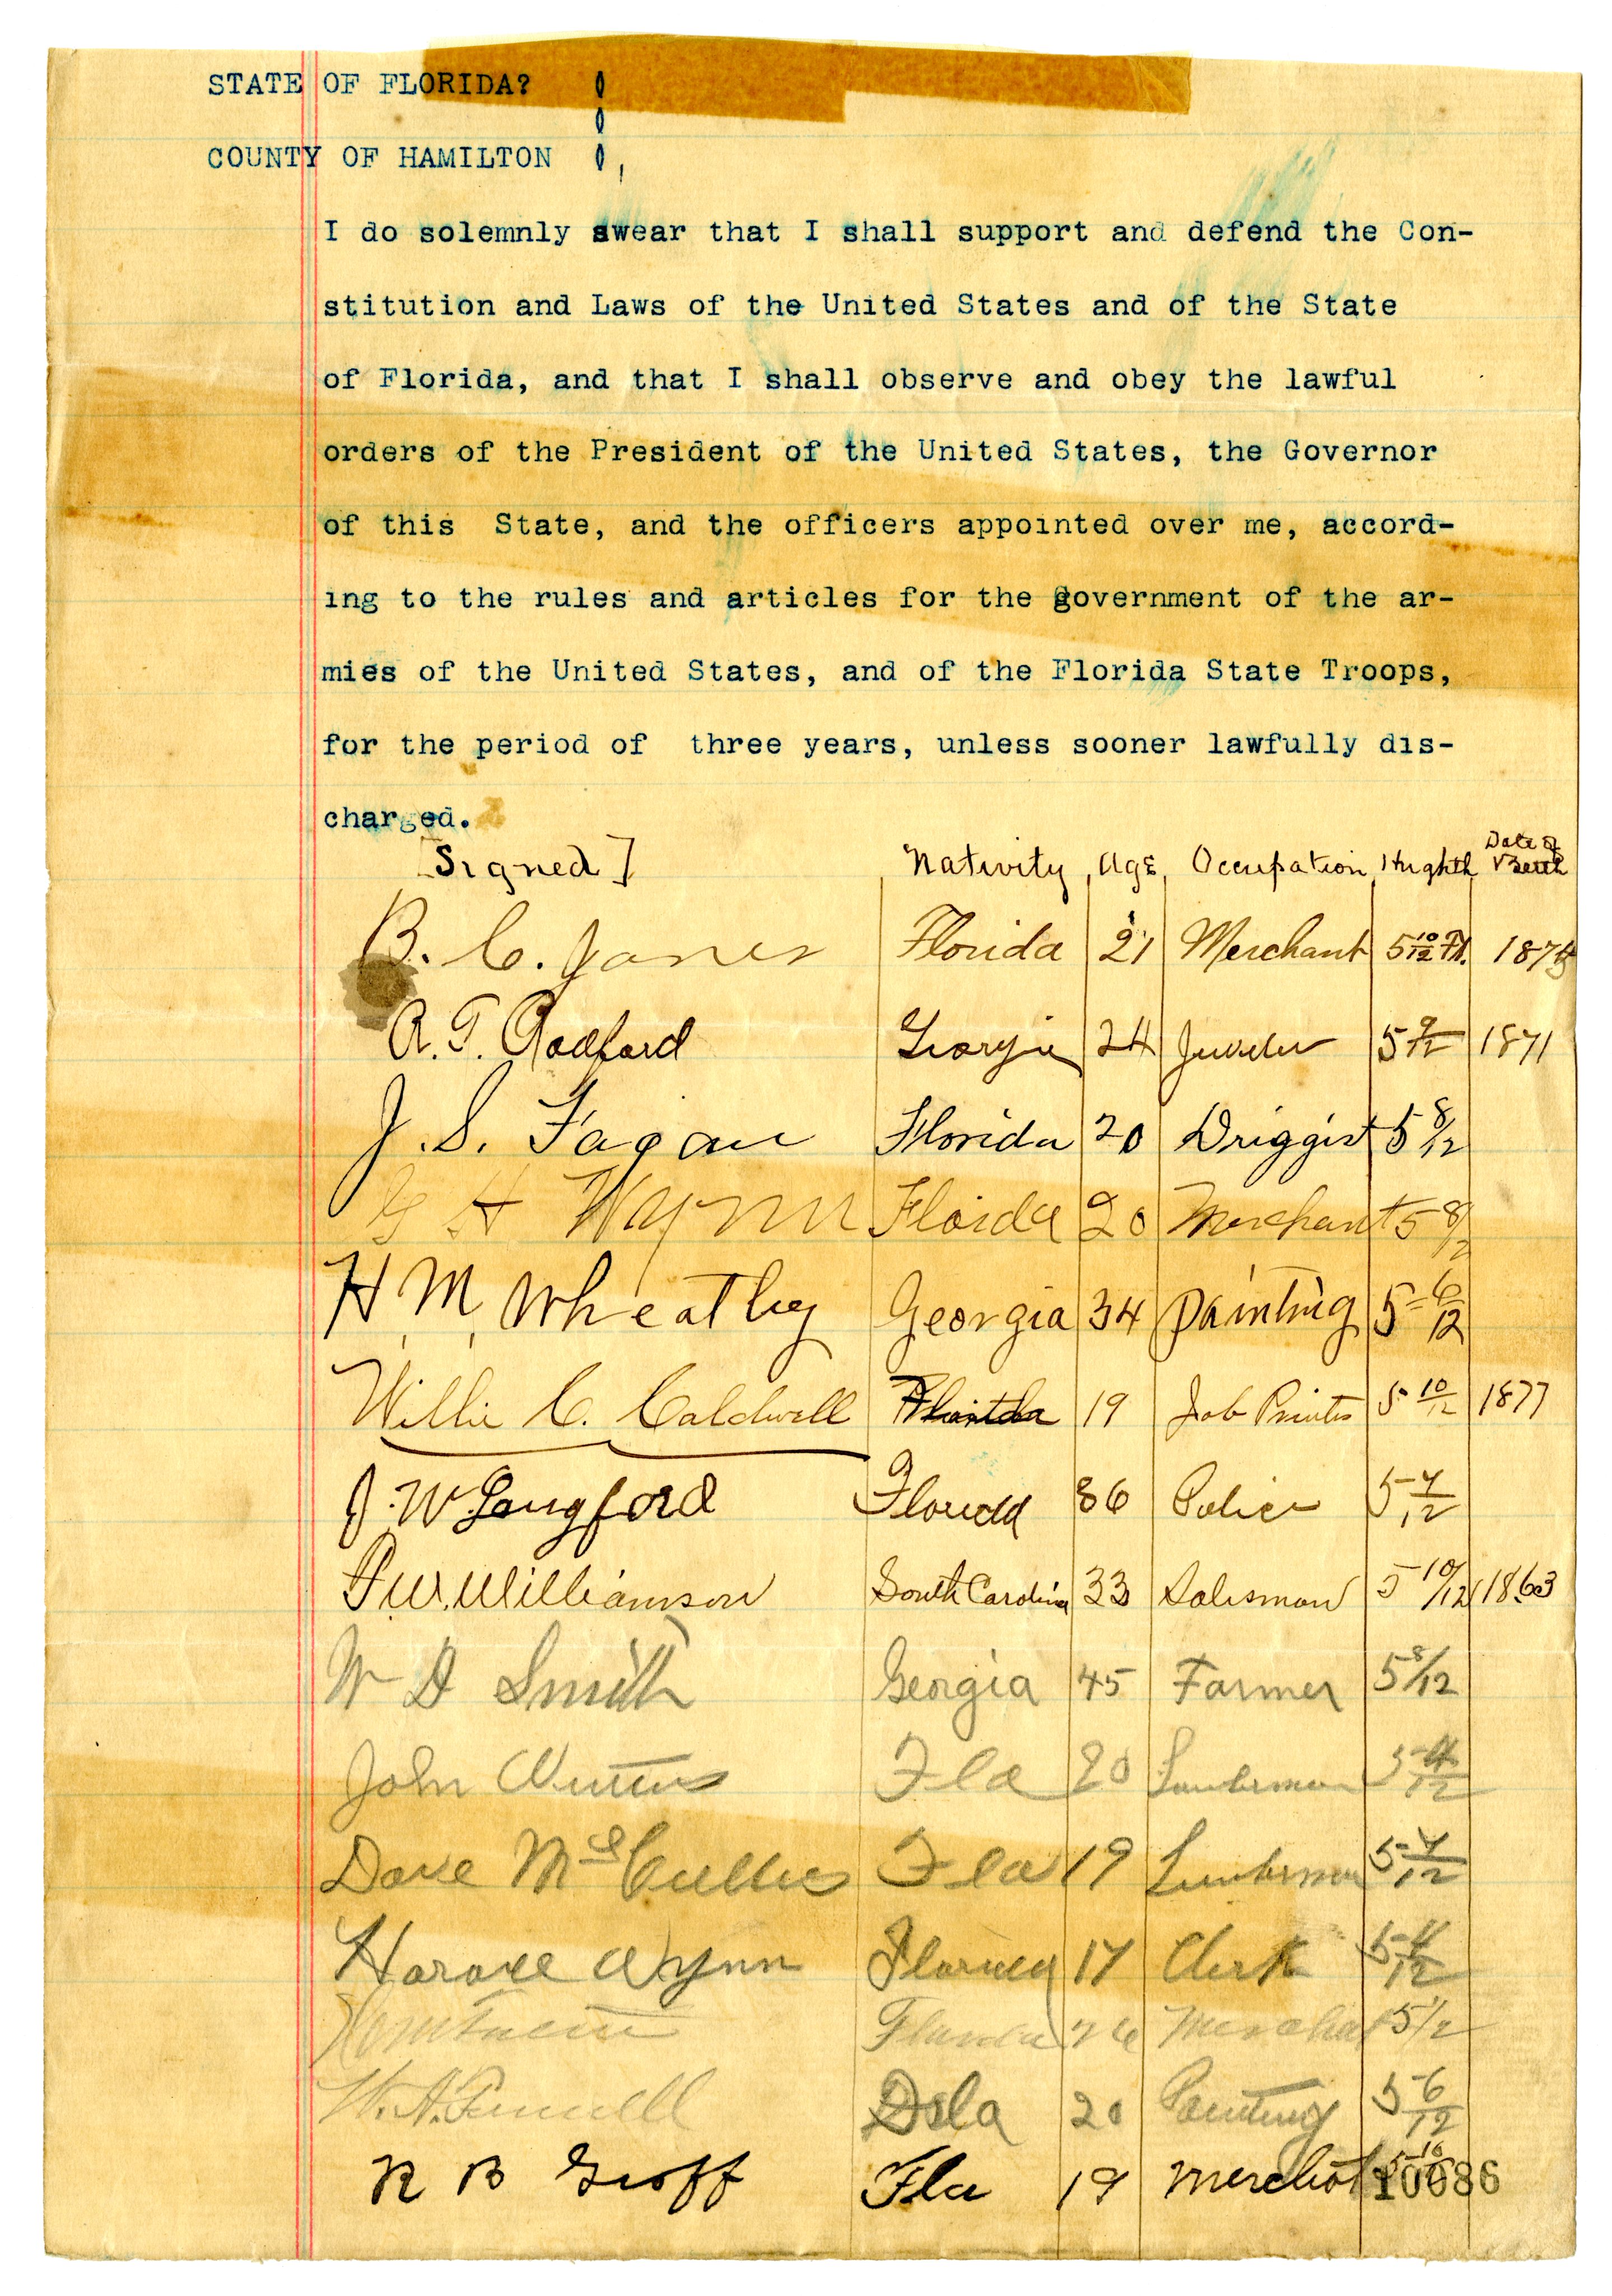 STATE OF FLORIDA?
COUNTY OF HAMILTON
I do solemnly swear that I shall support and defend the Con-
stitution and Laws of the United States and of the State
of Florida, and that I shall observe and obey the lawful
orders of the President of the United States, the Governor
of this State, and the officers appointed over me, accord-
ing to the rules and articles for the government of the ar-
mies of the United States, and of the Florida State Troops,
for the period of three years, unless sooner lawfully dis-
charged.
[Signed] Nativity Age Occupation Hughth Date of Berth
B. C. Jones Florida 21 Merchant 5 10/12 Ft.
A. T. Radford Georgia 24 Juweler 5 9/12 1871
J. S. Fagan Florida 20 Driggist 5 8/12
G H Wynn Florida 20 Merchant 5 8/12
H. M. Wheatley Georgia 34 Painting 5 6/12
Willie C. Caldwell Florida 19 Job Printer 5 10/12 1877
J. W Langford Florida 36 Police 5
P. W. Williamson South Carolina 33 Salesman 5 10/12 1863
W D Smith Georgia 45 Farmer 5 8/12
John Fla 20 Lumberman 5
Dave Fla 19 Lumberman 5
Horace Wynn 17 Clerk 5
Florida 26
W. A. 20 Painting 5 6/12
R B Goff Fla 19 5 10/12
10086